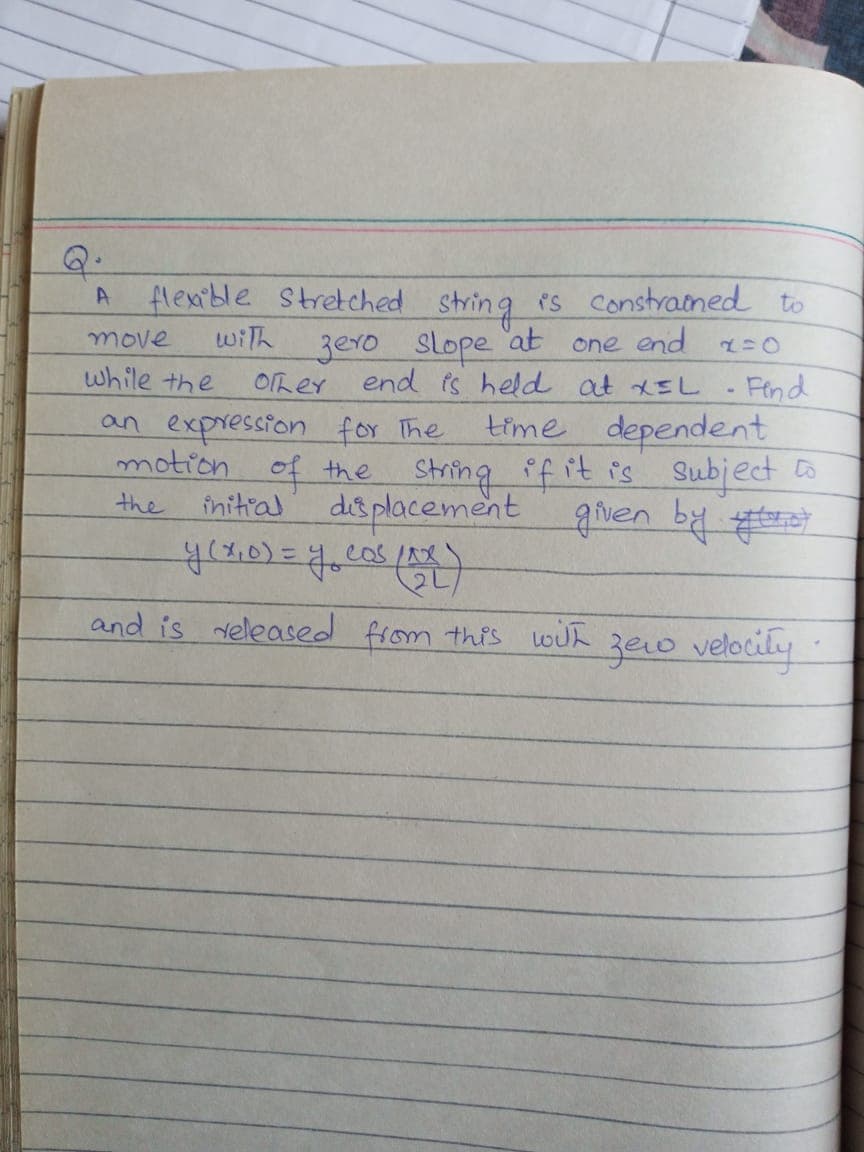 Q.
A flexible stretched string is constrained to
move with zero slope at one end x=0
while the other end is held at x=L. Find
an expression for the time dependent
motion of the string if it is subject to
the initial displacement given by
y(x,0) = y₀ cos (πx/2L)
and is released from this with zero velocity.